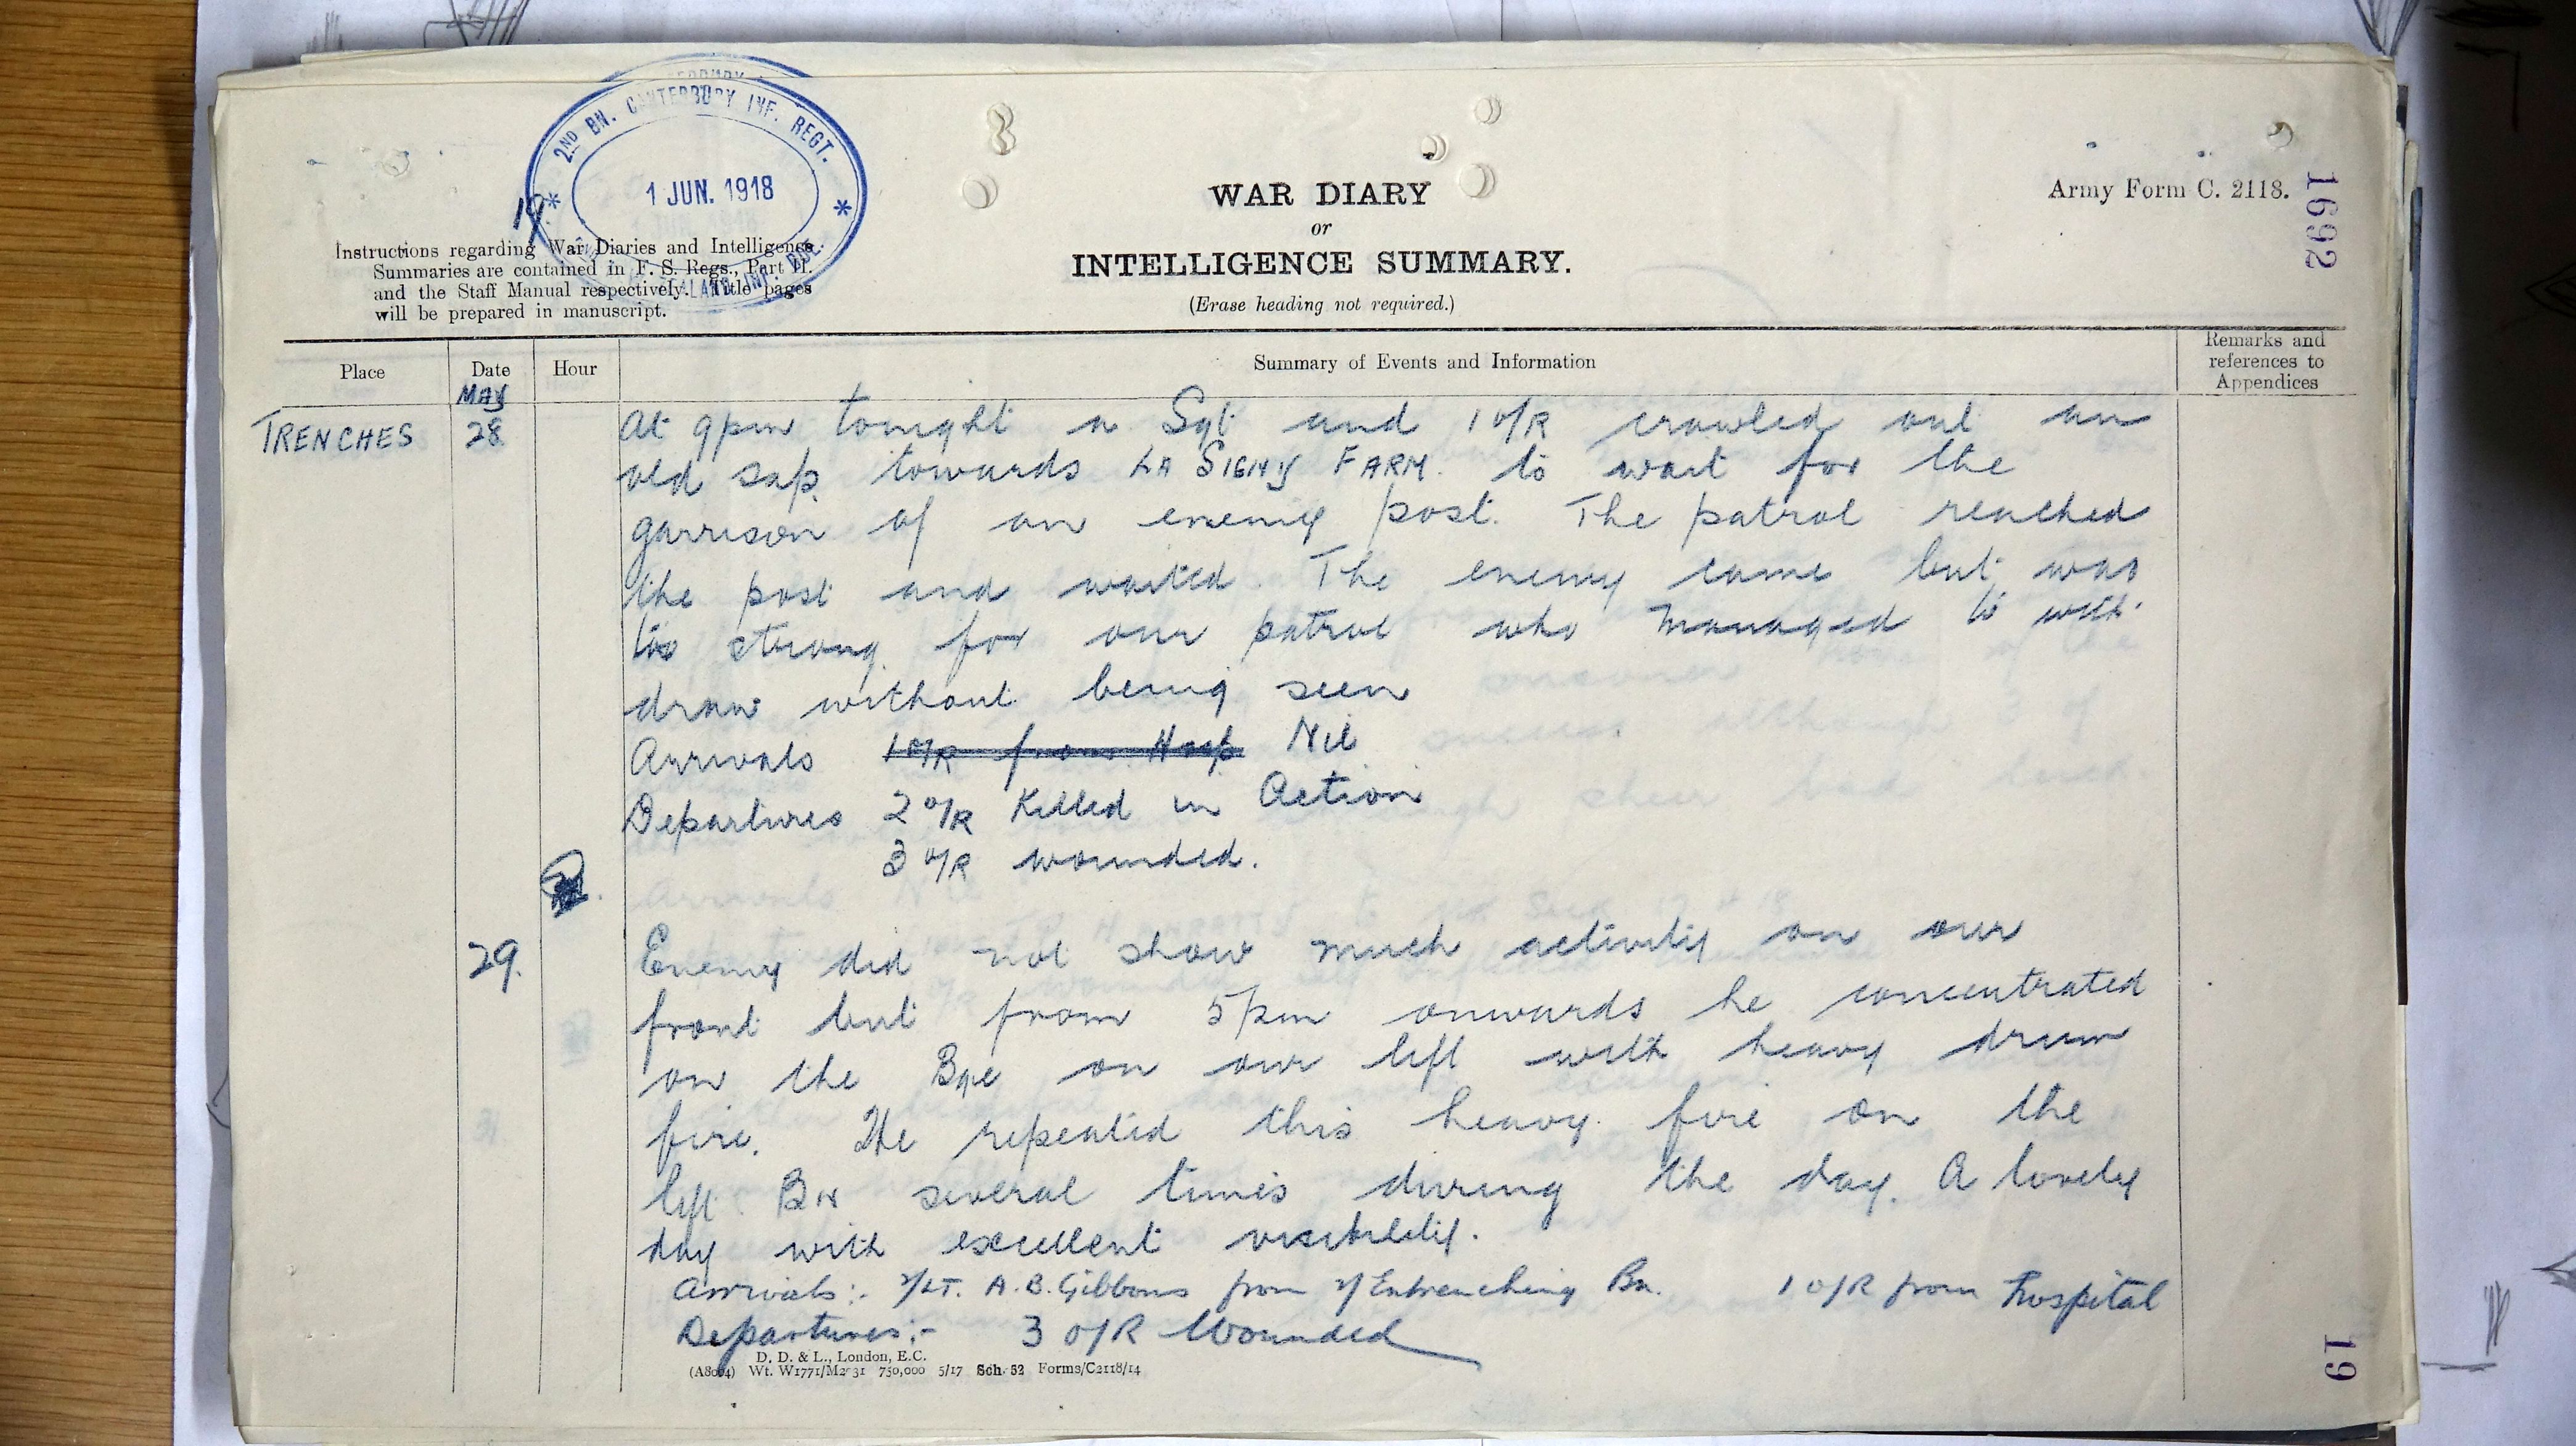 2ND BN. CANTERBURY INF. REGT.
1 JUN. 1918
19
Instructions regarding War Diaries and Intelligence
Summaries are contained in F. S. Regs., Part II.
and the Staff Manual respectively. Title pages
will be prepared in manuscript.
WAR DIARY
or
INTELLIGENCE SUMMARY.
(Erase heading not required.)
Army Form C. 2118.
1692
Place Date Hour Summary of Events and Information Remarks and
references to
Appendices
MAY
TRENCHES 28 At 9pm tonight a Sgt and 1 o/R crawled out an
old sap towards LA SIGNY FARM. to wait for the
garrison of an enemy post. The patrol reached
the post and waited. The enemy came but was
too strong for our patrol who managed to with-
draw without being seen
Arrivals 1 o/R from Hosp Nil
Departures 2 o/R Killed in Action
3 o/R wounded.
29. Enemy did not show much activity on our
front but from 5pm onwards he concentrated
on the Bge on our left with heavy drum
fire. He repeated this heavy fire on the
left Bn several times during the day. A lovely
day with excellent visibility.
Arrivals:- 2/LT. A.B. Gibbons from 2/Entrenching Bn. 1 o/R from hospital
Departures:- 3 o/R Wounded
D. D. & L., London, E.C.
Wt. W1771/M2031 750,000 5/17 Sch. 52 Forms/C2118/14
19